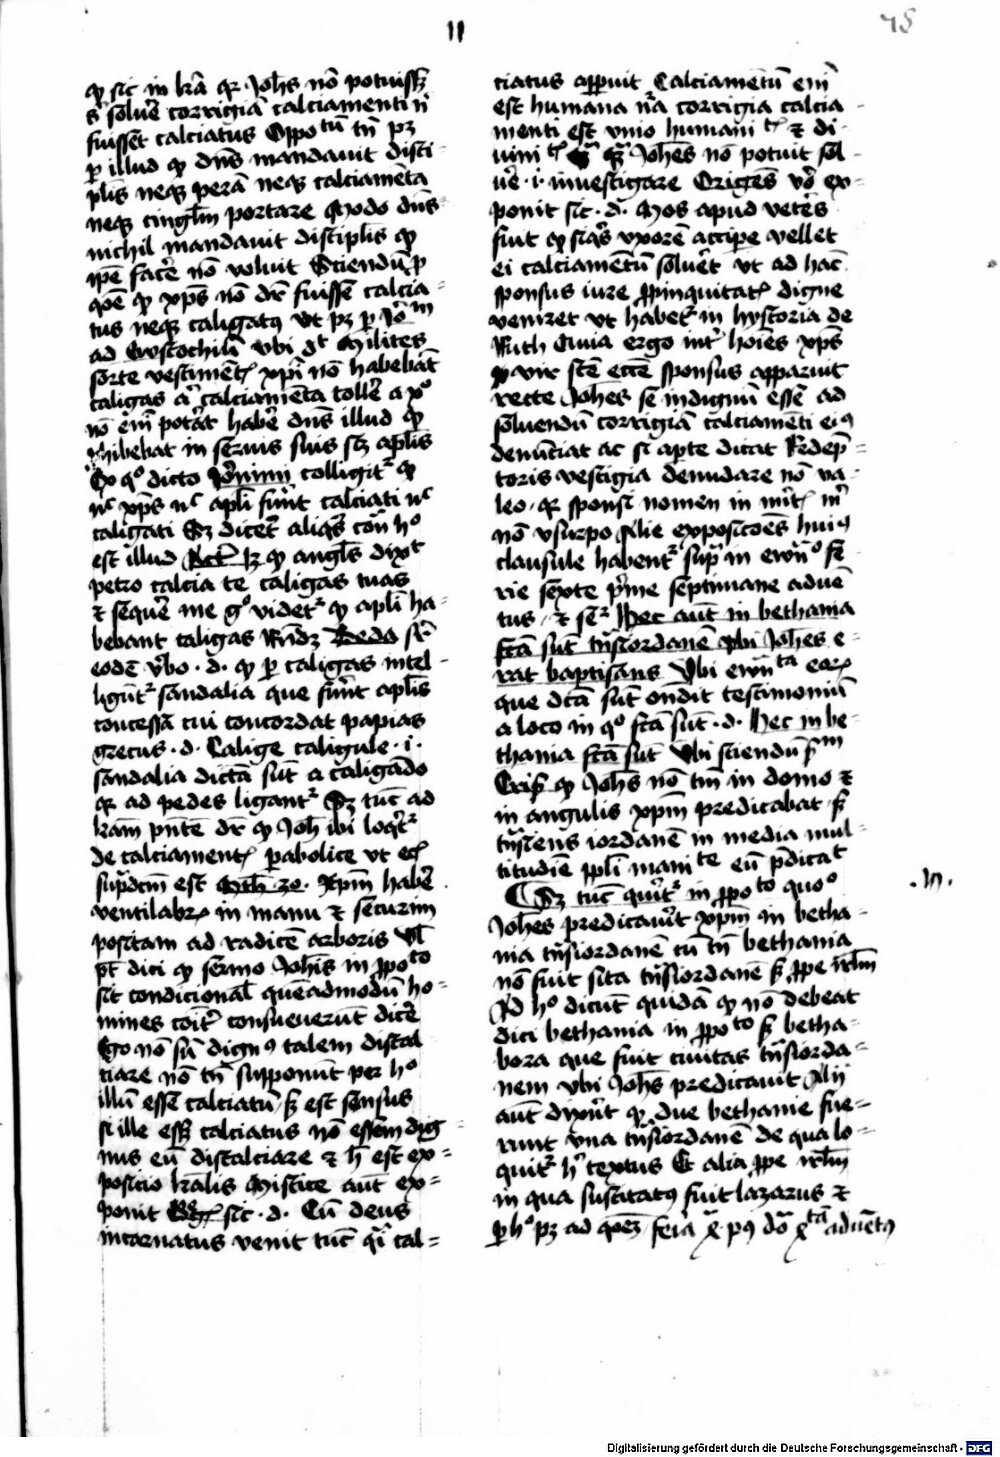 11
78
ꝙ sic in lrã qꝛ Johẽs nõ potuisset
solue᷑ corrigiã calciamenti n̄
fuisset calciatus Oppotũ tñ pꝫ
ꝑ illud ꝙ dñs mandauit disci-
plis neqꝫ perã neqꝫ calciamẽta
neqꝫ cinglm portare Modo dñs
nichil mandauit disciplis ꝙ
ipẽ face᷑ nõ voluit Sciendũ
qõẽ ꝙ xp̄s nõ dr̄ fuisse calcia-
tus neqꝫ caligatꝰ vt pꝫ ꝑ
ad Eustochiũ vbi Milites
sorte vestimẽt xp̄i nõ habebãt
caligas calciamẽta tolle᷑ a xº
nõ em̃ potat habe᷑ dñs illud ꝙ
ꝓhibebat in seruis suis scꝫ aplis
Ex qº dicto colligit᷑ ꝙ
nc xp̄s nc apli fuĩt calciati nc
caligati Sꝫ dicet aliqs hº
est illud ꝙ angls dixt
petro calcia te caligas tuas
⁊ seque᷑ me gº videt᷑ ꝙ apli ha-
bebant caligas Rñdꝫ Beda
eodẽ vbo · d · ꝙ ꝑ caligas intel-
ligũt᷑ sandalia que fuĩt aplis
concessa cui concordat papias
grecus · d · Calige caligule · i ·
sandalia dicta sũt a caligãdo
qꝛ ad pedes ligant᷑ Sꝫ tũc ad
lrãm pñtẽ dr̄ ꝙ Joh ibi loqt᷑
de calciament ꝑabolice vt
supdcm est Mth 3º · Xpm̃ habe᷑
ventilabꝝ in manu ⁊ securim
positam ad radicẽ arboris Vl
pt dici ꝙ sermo Johis in ꝓpoto
sit condicional quẽadmodũ ho-
mines cõit᷑ consueuerũt dice᷑
Ego nõ sũ dignꝰ talem discal-
ciare nõ tñ supponũt per hº
illũ esse calciatũ sꝫ est sensus
si ille esset calciatus nõ essem dig-
nus eũ discalciare ⁊ h̄ est ex-
positio lralis Mistice aũt ex-
ponit sic · d · Cũ deus
incarnatus venit tũc qi cal-
ciatus apparuit Calciamẽtũ em̃
est humana nr̃a corrigia calcia-
menti est vnio humani ⁊ di-
uini quã Johẽs nõ potuit sol-
ue᷑ · i · inuestigare Origẽs vº ex-
ponit sic · d · Mos apud vetẽs
fuit ꝙ si qs vxorẽ accipe᷑ vellet
ei calciamẽtũ soluẽt vt ad hãc
sponsus iure ꝓpinquitat digne
veniret vt habet᷑ in hystoria de
Ruth Quia ergo int᷑ hoĩes xp̄s
vir stẽ eccẽ sponsus apparuit
recte Johẽs se indignũ esse ad
soluendũ corrigiã calciamẽti eiꝰ
denũciat ac si aperte dicat Redẽp-
toris vestigia denudare nõ va-
leo qꝛ sponsi nomen in
nõ vsurpo Alie exposicões huiꝰ
clausule habent᷑ supra in ewñº fe-
rie sexte pme septimane aduẽ-
tus ⁊ Hec aũt in bethania
fcã sũt tnsiordanẽ vbi Johẽs e-
rat baptisans Vbi ewñta
que dcã sũt ondit testimoniũ
a loco in qº fcã sũt · d · Hec in be-
thania fcã sũt Vbi sciendũ
Cris ꝙ Johẽs nõ tm̃ in domo ⁊
in angulis xpm̃ predicabat sꝫ
tnsiens iordanẽ in media mul-
titudiẽ ppli eũ pdicat
Sꝫ tũc querit᷑ in ꝓpoto quoº
Johẽs predicauit xpm̃ in betha-
nia tnsiordanẽ cũ tñ bethania
nõ fuit sita tnsiordanẽ sꝫ ꝓpe irlm
Ad hº dicũt quidã ꝙ nõ debeat
dici bethania in ꝓpoto sꝫ betha-
bora que fuit ciuitas tnsiorda-
nem vbi Johẽs predicauit Alij
aũt dixẽt ꝙ due bethanie fue-
runt vna tnsiordanẽ de qua lo-
quit᷑ h̄ textus Et alia ꝓpe irlm
in qua suscitatꝰ fuit lazarus ⁊
ꝑ hº pꝫ ad feria
Digitalisierung gefördert durch die Deutsche Forschungsgemeinschaft - DFG